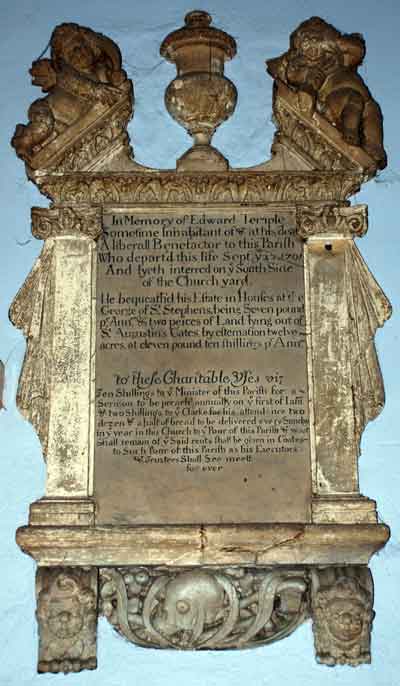 In Memory of Edward Temple
Sometime Inhabitant of & at his deat
A liberall Benefactor to this Parish
Who depart'd this life Sept. yᵉ
And lyeth interred on yᵉ South Side
of the Church yard.
He bequeath'd his Estate in Houses at
George of Sᵗ Stephens, being Seven pound
p Annᵐ & two peices of Land lying out of
Sᵗ Augustin's Gates, by estemation twelve
acres, at eleven pound ten shillings p Annᵐ
to these Charitable Vses viz
Ten Shillings to yᵉ Minister of this Parish for a
Sermon to be preach'd annually on yᵉ first of
& two Shillings to yᵉ Clarke for his attendance two
dozen & a half of bread to be delivered every Sunday
in yᵉ year in this Church to yᵉ Poor of this Parish & what
Shall remain of yᵉ Said rents shall be given in Coales
to Such Poor of this Parish as his Executors
& Trustees Shall See meett
for ever